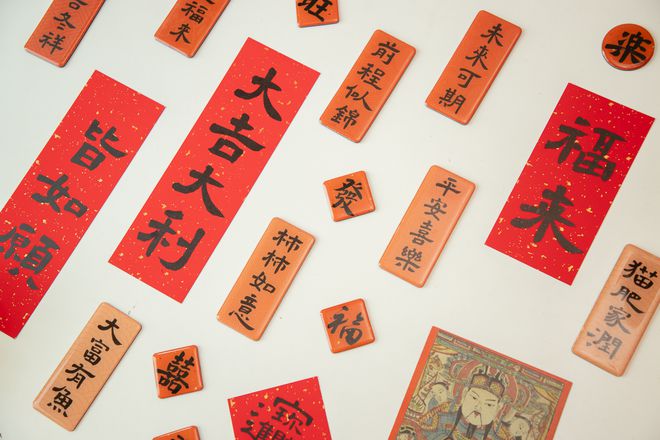 冬祥
福來
旺
前程似錦
未來可期
樂
皆如願
大吉大利
福來
發
平安喜樂
柿柿如意
猫肥家潤
大富有魚
囍
福